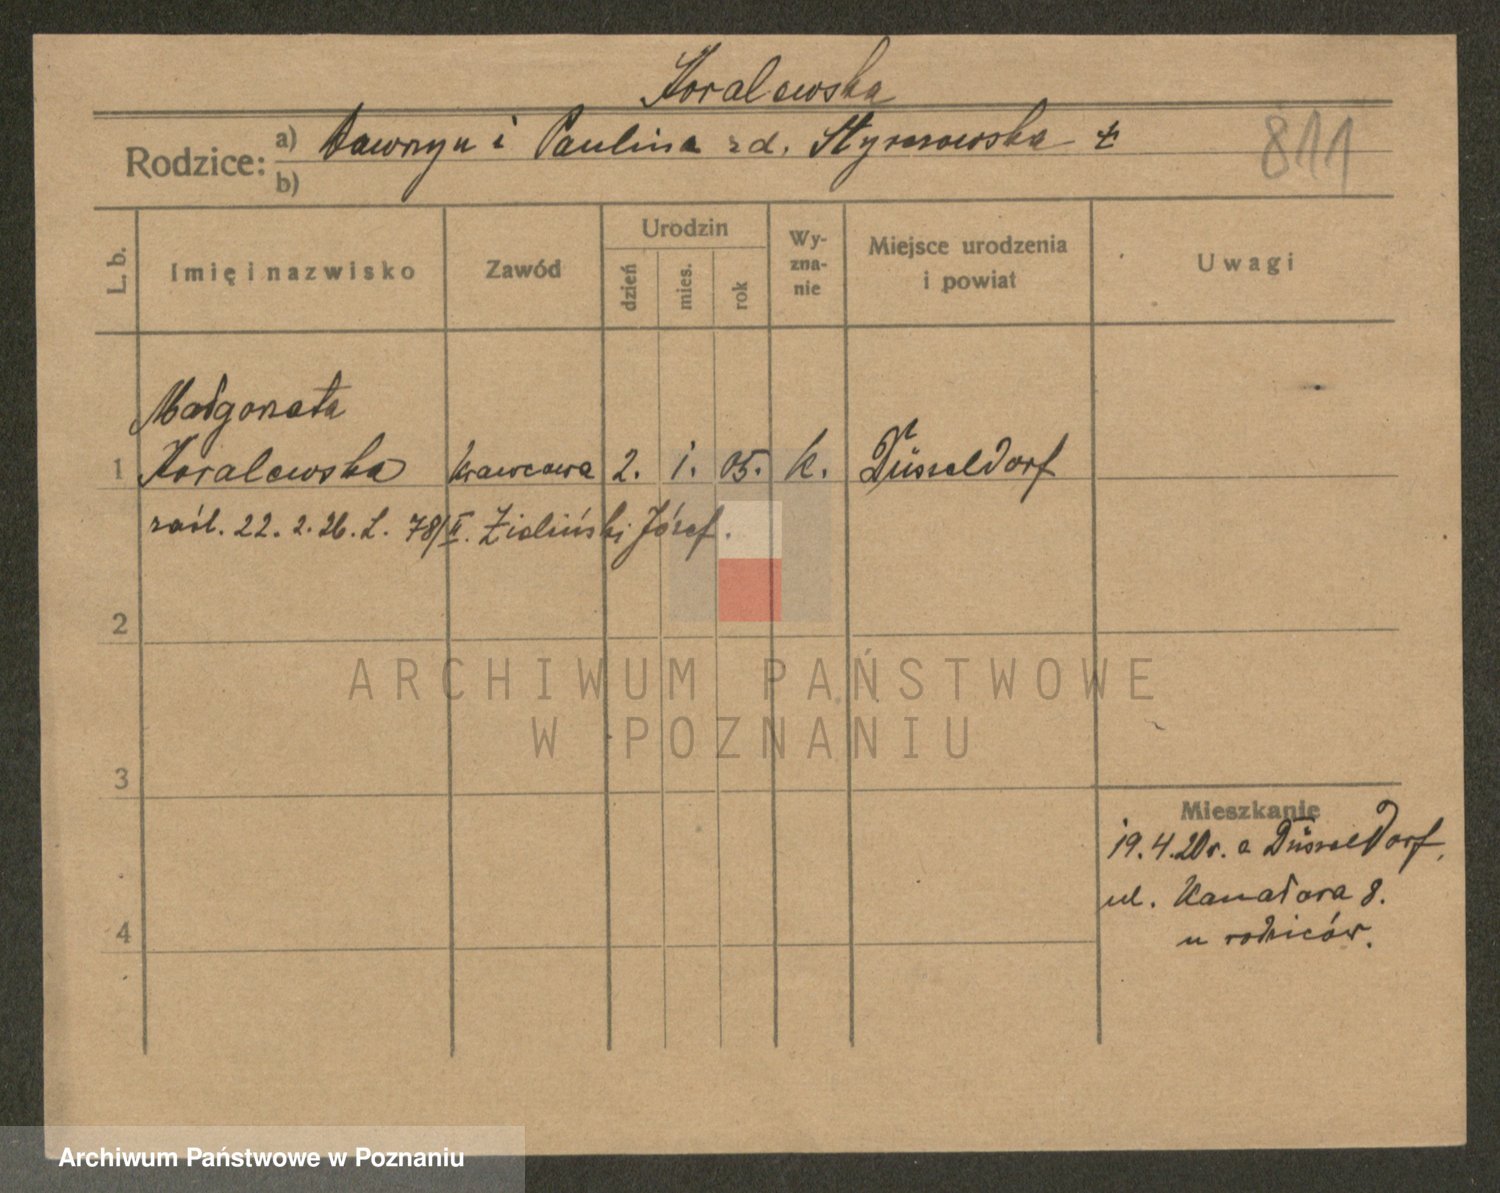 Koralewska
Rodzice: a) Wawrzyn i Paulina zd. Styszowska
b)
811
L. b.
Imię i nazwisko
Zawód
Urodzin
dzień
mies.
rok
Wy-
zna-
nie
Miejsce urodzenia
i powiat
Uwagi
Małgorzata
1 Koralewska krawcowa 2. 1. 05. k. Düsseldorf
zaśl. 22. 2. 26. L. 78/II. Zieliński Józef.
2
3
4
Mieszkanie
19.4.20r. z Düsseldorf,
ul. Kanałowa 8.
u rodziców.
ARCHIWUM PAŃSTWOWE
W POZNANIU
Archiwum Państwowe w Poznaniu